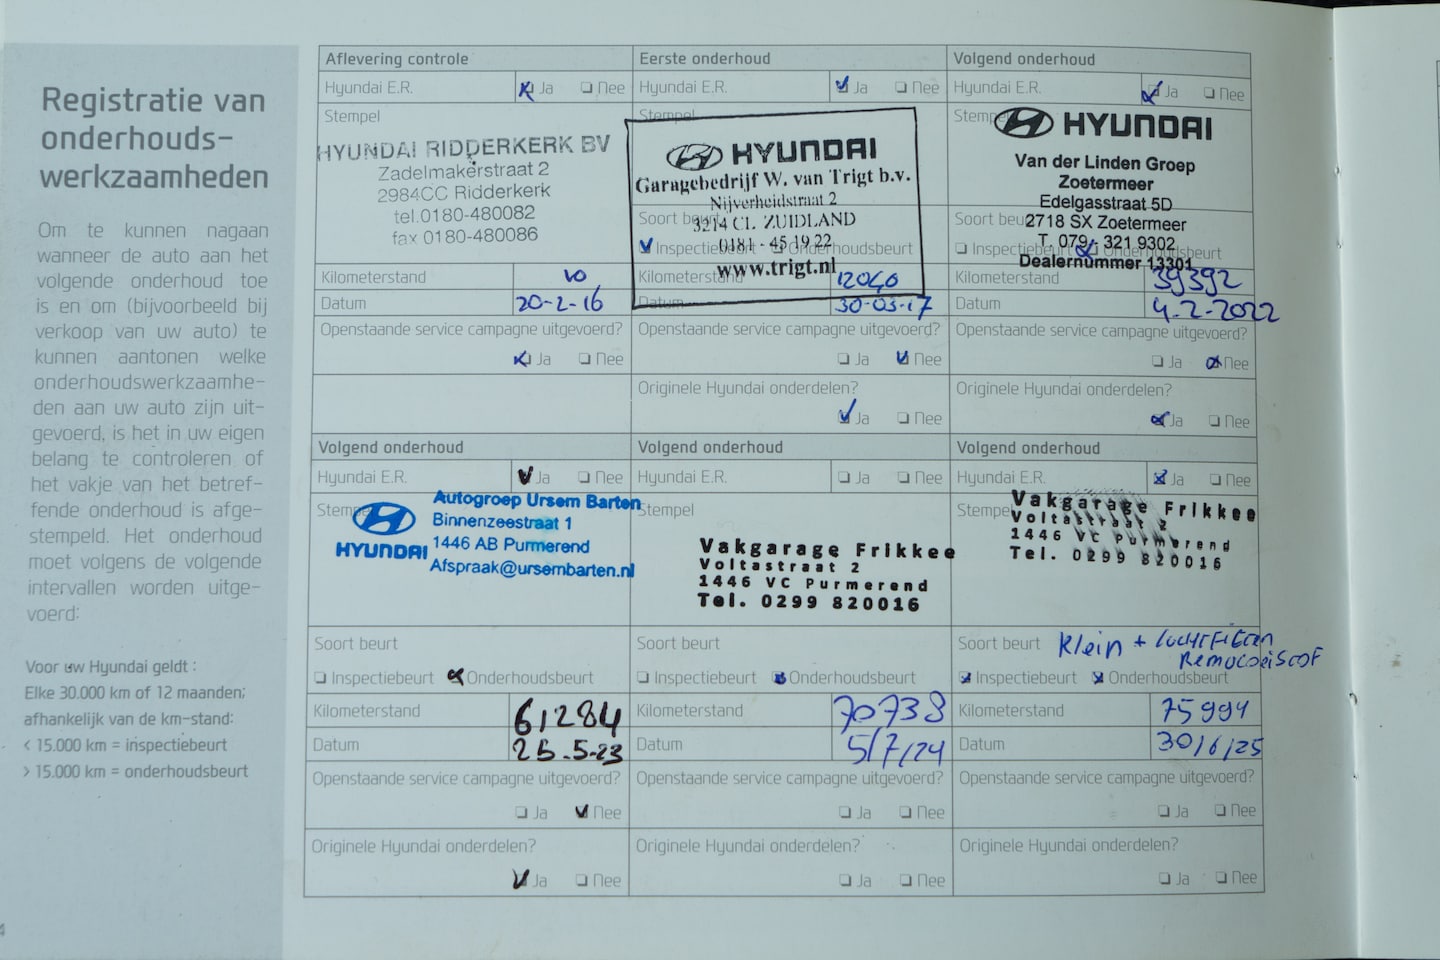 Registratie van
onderhouds-
werkzaamheden
Om te kunnen nagaan
wanneer de auto aan het
volgende onderhoud toe
is en om (bijvoorbeeld bij
verkoop van uw auto) te
kunnen aantonen welke
onderhoudswerkzaamhe-
den aan uw auto zijn uit-
gevoerd, is het in uw eigen
belang te controleren of
het vakje van het betref-
fende onderhoud is afge-
stempeld. Het onderhoud
moet volgens de volgende
intervallen worden uitge-
voerd:
Voor uw Hyundai geldt :
Elke 30.000 km of 12 maanden;
afhankelijk van de km-stand:
< 15.000 km = inspectiebeurt
> 15.000 km = onderhoudsbeurt
Aflevering controle
Hyundai E.R. Ja Nee
Stempel
HYUNDAI RIDDERKERK BV
Zadelmakerstraat 2
2984CC Ridderkerk
tel.0180-480082
fax 0180-480086
Kilometerstand 10
Datum 20-2-16
Openstaande service campagne uitgevoerd?
Ja Nee
Eerste onderhoud
Hyundai E.R. Ja Nee
Stempel
HYUNDAI
Garagebedrijf W. van Trigt b.v.
Nijverheidstraat 2
3214 CL ZUIDLAND
0181 - 45 19 22
www.trigt.nl
Soort beurt
Inspectiebeurt Onderhoudsbeurt
Kilometerstand 12040
Datum 30-03-17
Openstaande service campagne uitgevoerd?
Ja Nee
Originele Hyundai onderdelen?
Ja Nee
Volgend onderhoud
Hyundai E.R. Ja Nee
Stempel
HYUNDAI
Van der Linden Groep
Zoetermeer
Edelgasstraat 5D
2718 SX Zoetermeer
T. 079 - 321 9302
Dealernummer 13301
Soort beurt
Inspectiebeurt Onderhoudsbeurt
Kilometerstand 39392
Datum 4-2-2022
Openstaande service campagne uitgevoerd?
Ja Nee
Originele Hyundai onderdelen?
Ja Nee
Volgend onderhoud
Hyundai E.R. Ja Nee
Stempel
HYUNDAI
Autogroep Ursem Barten
Binnenzeestraat 1
1446 AB Purmerend
Afspraak@ursembarten.nl
Soort beurt
Inspectiebeurt Onderhoudsbeurt
Kilometerstand 61284
Datum 25-5-23
Openstaande service campagne uitgevoerd?
Ja Nee
Originele Hyundai onderdelen?
Ja Nee
Volgend onderhoud
Hyundai E.R. Ja Nee
Stempel
Vakgarage Frikkee
Voltastraat 2
1446 VC Purmerend
Tel. 0299 820016
Soort beurt
Inspectiebeurt Onderhoudsbeurt
Kilometerstand 70738
Datum 5/7/24
Openstaande service campagne uitgevoerd?
Ja Nee
Originele Hyundai onderdelen?
Ja Nee
Volgend onderhoud
Hyundai E.R. Ja Nee
Stempel
Vakgarage Frikkee
Voltastraat 2
1446 VC Purmerend
Tel. 0299 820016
Soort beurt Klein + Luchtfilter
Remvloeistof
Inspectiebeurt Onderhoudsbeurt
Kilometerstand 75994
Datum 30/6/25
Openstaande service campagne uitgevoerd?
Ja Nee
Originele Hyundai onderdelen?
Ja Nee